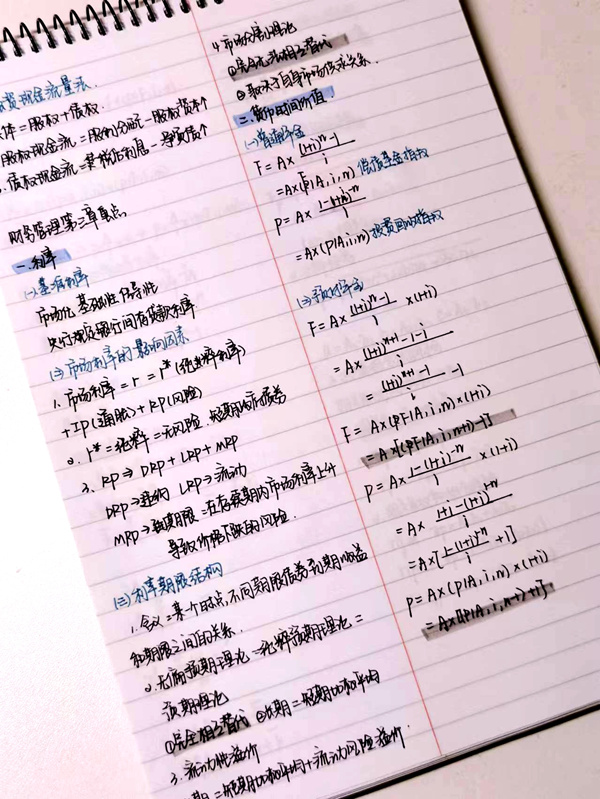 现金流量法
体=股权+债权
股权现金流=股利分配-股权资本
债权现金流=税后利息-净负债
财务管理第三章重点
一.利率
(一)基准利率
市场化 基础性 传导性
央行规定银行间存贷款利率
(二)市场利率的影响因素
1.市场利率=r=r*(纯粹利率)
+IP(通胀)+RP(风险)
2. r*=纯粹=无风险.短期政府债券
3. RP⇒DRP+LRP+MRP
DRP⇒违约 LRP⇒流动
MRP⇒到期期限=在存续期内市场利率上升
导致价格下跌的风险.
(三)利率期限结构
1.含义=某个时点,不同期限债券到期收益
和期限之间的关系.
2.无偏预期理论=纯粹预期理论=
预期理论
①完全相互替代 ②长期=短期几何平均
3.流动性溢价
期=短期几何平均+流动风险溢价.
4.市场分割理论
①完全无法相互替代
②取决于自身市场供求关系.
二.货币时间价值
(一)普通年金
F=A×((1+i)^n-1)/i
=A×(F|A,i,n) 偿债基金
P=A×(1-(1+i)^-n)/i
=A×(P|A,i,n) 投资回收
(二)预付年金
F=A×((1+i)^n-1)/i ×(1+i)
=A×((1+i)^n+1-1-i)/i
=((1+i)^n+1)/i -1
F=A×(F|A,i,n)×(1+i)
=A×[(F|A,i,n+1)-1]
P=A×(1-(1+i)^-n)/i ×(1+i)
=A×(1+i-(1+i)^1-n)/i
=A×[(1-(1+i)^1-n)/i +1]
P=A×(P|A,i,n)×(1+i)
=A×[(P|A,i,n-1)+1]